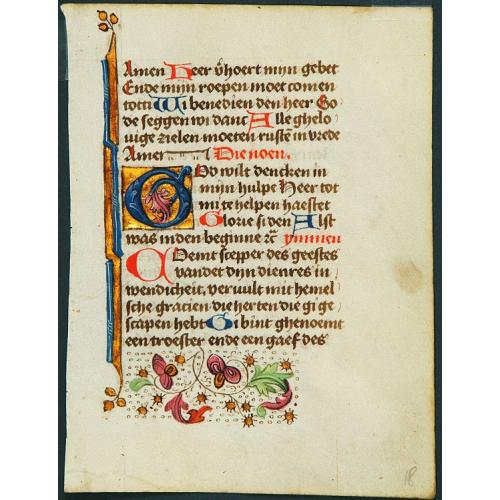 Amen Heer v̄hoert mijn gebet
Ende mijn roepen moet comen
tot ti Wi benedien den heer Go
de seggen wi danc Alle ghelo
uige zielen moeten rustē in vrede
Amen Die noen.
God wilt dencken in
mijn hulpe Heer tot
mi te helpen haestet
Glorie si den Alst
was inden beginne ⁊c ymmen
Coemt scepper des geestes
vandet dijn dienres in
wendicheit, vervult mit hemel
sche gracien die herten die gi ge
scapen hebt Gi bint ghenoemt
een troester ende een gaef des
18